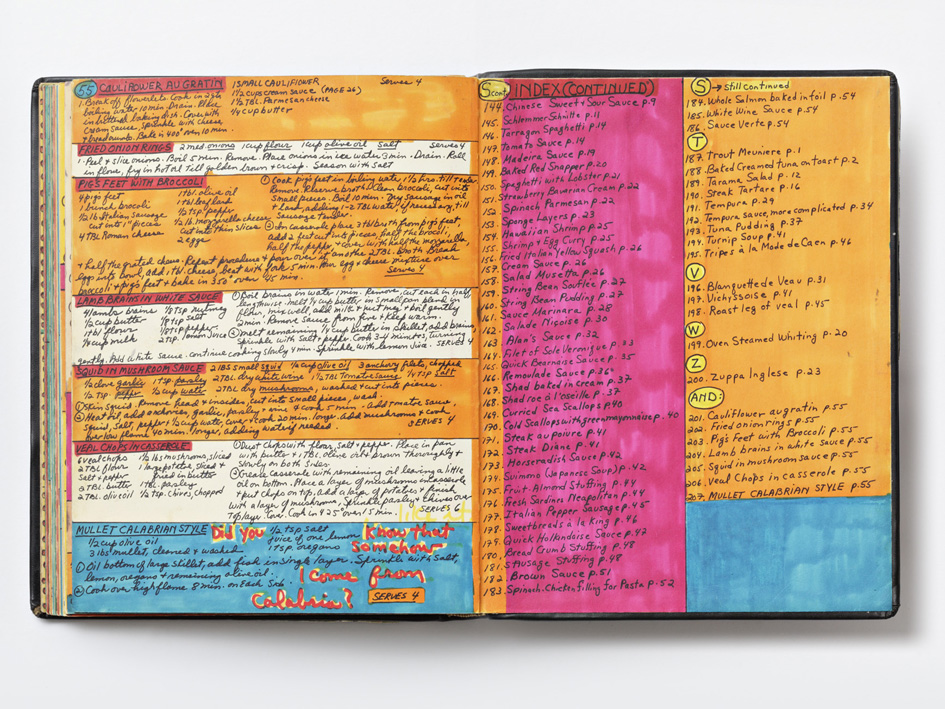 55 CAULIFLOWER AU GRATIN
1 SMALL CAULIFLOWER Serves 4
1½ cups cream sauce (PAGE 26)
1½ TBL. Parmesan cheese
¼ cup butter
1. Break off flowerlets. Cook in 2 qts
boiling water 10 min. Drain. Place
in buttered baking dish. Cover with
cream sauce, sprinkle with cheese
+ breadcrumbs. Bake in 400° oven 10 min.
FRIED ONION RINGS 2 med. onions 1 cup flour 1 cup olive oil salt Serves 4
1. Peel & slice onions. Boil 5 min. Remove. Place onions in ice water 3 min. Drain. Roll
in flour, fry in hot oil till golden brown & crisp. Season with salt
PIG'S FEET WITH BROCCOLI
4 pigs feet ¼ cup olive oil
1 bunch broccoli 1 tbl leaf lard
½ lb Italian Sausage ½ tsp pepper
cut into 1" pieces ½ lb. mozzarella cheese
4 TBL Roman cheese cut into thin slices
2 eggs
① Cook pigs feet in boiling water 1½ hrs. till tender
Remove. Reserve broth. Clean broccoli, cut into
Small pieces. Boil 10 min. Dry sausage in oil
+ Lard, adding 1-2 TBL water, if necessary, till
Sausage tender.
② In casserole place 3 tbl broth from pigs feet
add 2 feet cut into pieces, half the broccoli,
half the pepper + cover with half the mozzarella,
+ half the grated cheese. Repeat procedure + pour over it another 2 TBL broth. Break
eggs into bowl, add 1 tbl. cheese, beat with fork 5 min. Pour egg & cheese mixture over
broccoli + pigs feet & bake in 350° oven 45 min. Serves 4
LAMB BRAINS IN WHITE SAUCE
4 lambs brains ⅛ tsp nutmeg
½ cup butter ⅛ tsp salt
1 tbl flour ¼ tsp pepper
¾ cup milk 2 tsp. lemon juice
① Boil brains in water 1 min. Remove, cut each in half
lengthwise. Melt ¼ cup butter in small pan blend in
flour, mix well, add milk + nutmeg + boil gently
2 min. Remove sauce from fire + keep warm.
② Melt remaining ¼ cup butter in skillet, add brains,
Sprinkle with Salt + pepper. Cook 3-4 minutes, turning
gently. Add white sauce. continue cooking slowly 4 min. Sprinkle with lemon juice. SERVES 4
SQUID IN MUSHROOM SAUCE 2 lbs small squid ½ cup olive oil 3 anchovy filets, chopped
½ clove garlic 1 tsp parsley 2 TBL. dry white wine 1½ TBL Tomato Sauce ¼ tsp salt
½ tsp. pepper ½ cup water 2 TBL dry mushrooms, washed & cut into pieces.
① Skin squid. Remove head & insides, cut into small pieces, wash.
② Heat oil, add anchovies, garlic, parsley + wine + cook 5 min. Add tomato sauce,
Squid, salt, pepper + ½ cup water, cover + cook 20 min. longer. Add mushrooms + cook
over low flame 40 min. longer, adding water if needed. SERVES 4
VEAL CHOPS IN CASSEROLE
6 veal chops ½ lbs mushrooms, sliced
2 TBL flour 1 large potato, sliced &
Salt & pepper fried in butter
3 TBL. butter 1 TBL. parsley
2 TBL. olive oil ½ tsp. chives, chopped
① Dust chops with flour, Salt & pepper. Place in pan
with butter + TBL. Olive oil & brown thoroughly &
slowly on both sides.
② Grease casserole with remaining oil leaving a little
oil on bottom. Place a layer of mushrooms in casserole
+ put chops on top, add a layer of potatoes & finish
with a layer of mushrooms, Sprinkle parsley & chives over
top layer. Cover. Cook in 425° oven 15 min. SERVES 6
MULLET CALABRIAN STYLE
½ cup olive oil ½ tsp salt
3 lbs. mullet, cleaned & washed juice of one lemon
1 tsp. oregano
① Oil bottom of large skillet, add fish in single layer. Sprinkle with salt,
lemon, oregano + remaining olive oil.
② Cook over high flame 8 min. on Each Side. SERVES 4
Did you Know that
somehow
I come from
Calabria?
S cont. INDEX (CONTINUED)
144. Chinese Sweet & Sour Sauce p.9
145. Schlemmer Schnitte p.11
146. Tarragon Spaghetti p.14
147. Tomato Sauce p.14
148. Madeira Sauce p.19
149. Baked Red Snapper p.20
150. Spaghetti with Lobster p.21
151. Strawberry Bavarian Cream p.22
152. Spinach Parmesan p.22
153. Sponge Layers p.23
154. Hawaiian Shrimp p.25
155. Shrimp & Egg Curry p.25
156. Fried Italian Yellow Squash p.26
157. Cream Sauce p.26
158. Salad Musetta p.26
159. String Bean Soufflée p.27
160. String Bean Pudding p.27
161. Sauce Marinara p.28
162. Salade Niçoise p.30
163. Alan's Sauce p.32
164. Filet of Sole Veronique p.33
165. Quick Bearnaise Sauce p.35
166. Remoulade Sauce p.36
167. Shad baked in cream p.37
168. Shad roe à l'oseille p.37
169. Curried Sea Scallops p.40
170. Cold Scallops with green mayonnaise p.40
171. Steak au poivre p.41
172. Steak Diane p.41
173. Horseradish Sauce p.42
174. Suimono (Japanese Soup) p.42
175. Fruit-Almond Stuffing p.44
176. Fresh Sardines Neapolitan p.44
177. Italian Pepper Sausage p.45
178. Sweetbreads à la King p.46
179. Quick Hollandaise Sauce p.47
180. Bread Crumb Stuffing p.48
181. Sausage Stuffing p.48
182. Brown Sauce p.51
183. Spinach-Chicken filling for Pasta p.52
S → Still Continued
184. Whole Salmon baked in foil p.54
185. White Wine Sauce p.54
186. Sauce Verte p.54
T
187. Trout Meuniere p.1
188. Baked Creamed tuna on toast p.2
189. Tarama Salad p.12
190. Steak Tartare p.16
191. Tempura p.29
192. Tempura sauce, more complicated p.34
193. Tuna Pudding p.37
194. Turnip Soup p.41
195. Tripes à la Mode de Caen p.46
V
196. Blanquette de Veau p.31
197. Vichyssoise p.41
198. Roast leg of veal p.45
W
199. Oven Steamed Whiting p.20
Z
200. Zuppa Inglese p.23
AND:
201. Cauliflower au gratin p.55
202. Fried onion rings p.55
203. Pig's Feet with Broccoli p.55
204. Lamb brains in white Sauce p.55
205. Squid in mushroom sauce p.55
206. Veal Chops in casserole p.55
207. MULLET CALABRIAN STYLE p.55